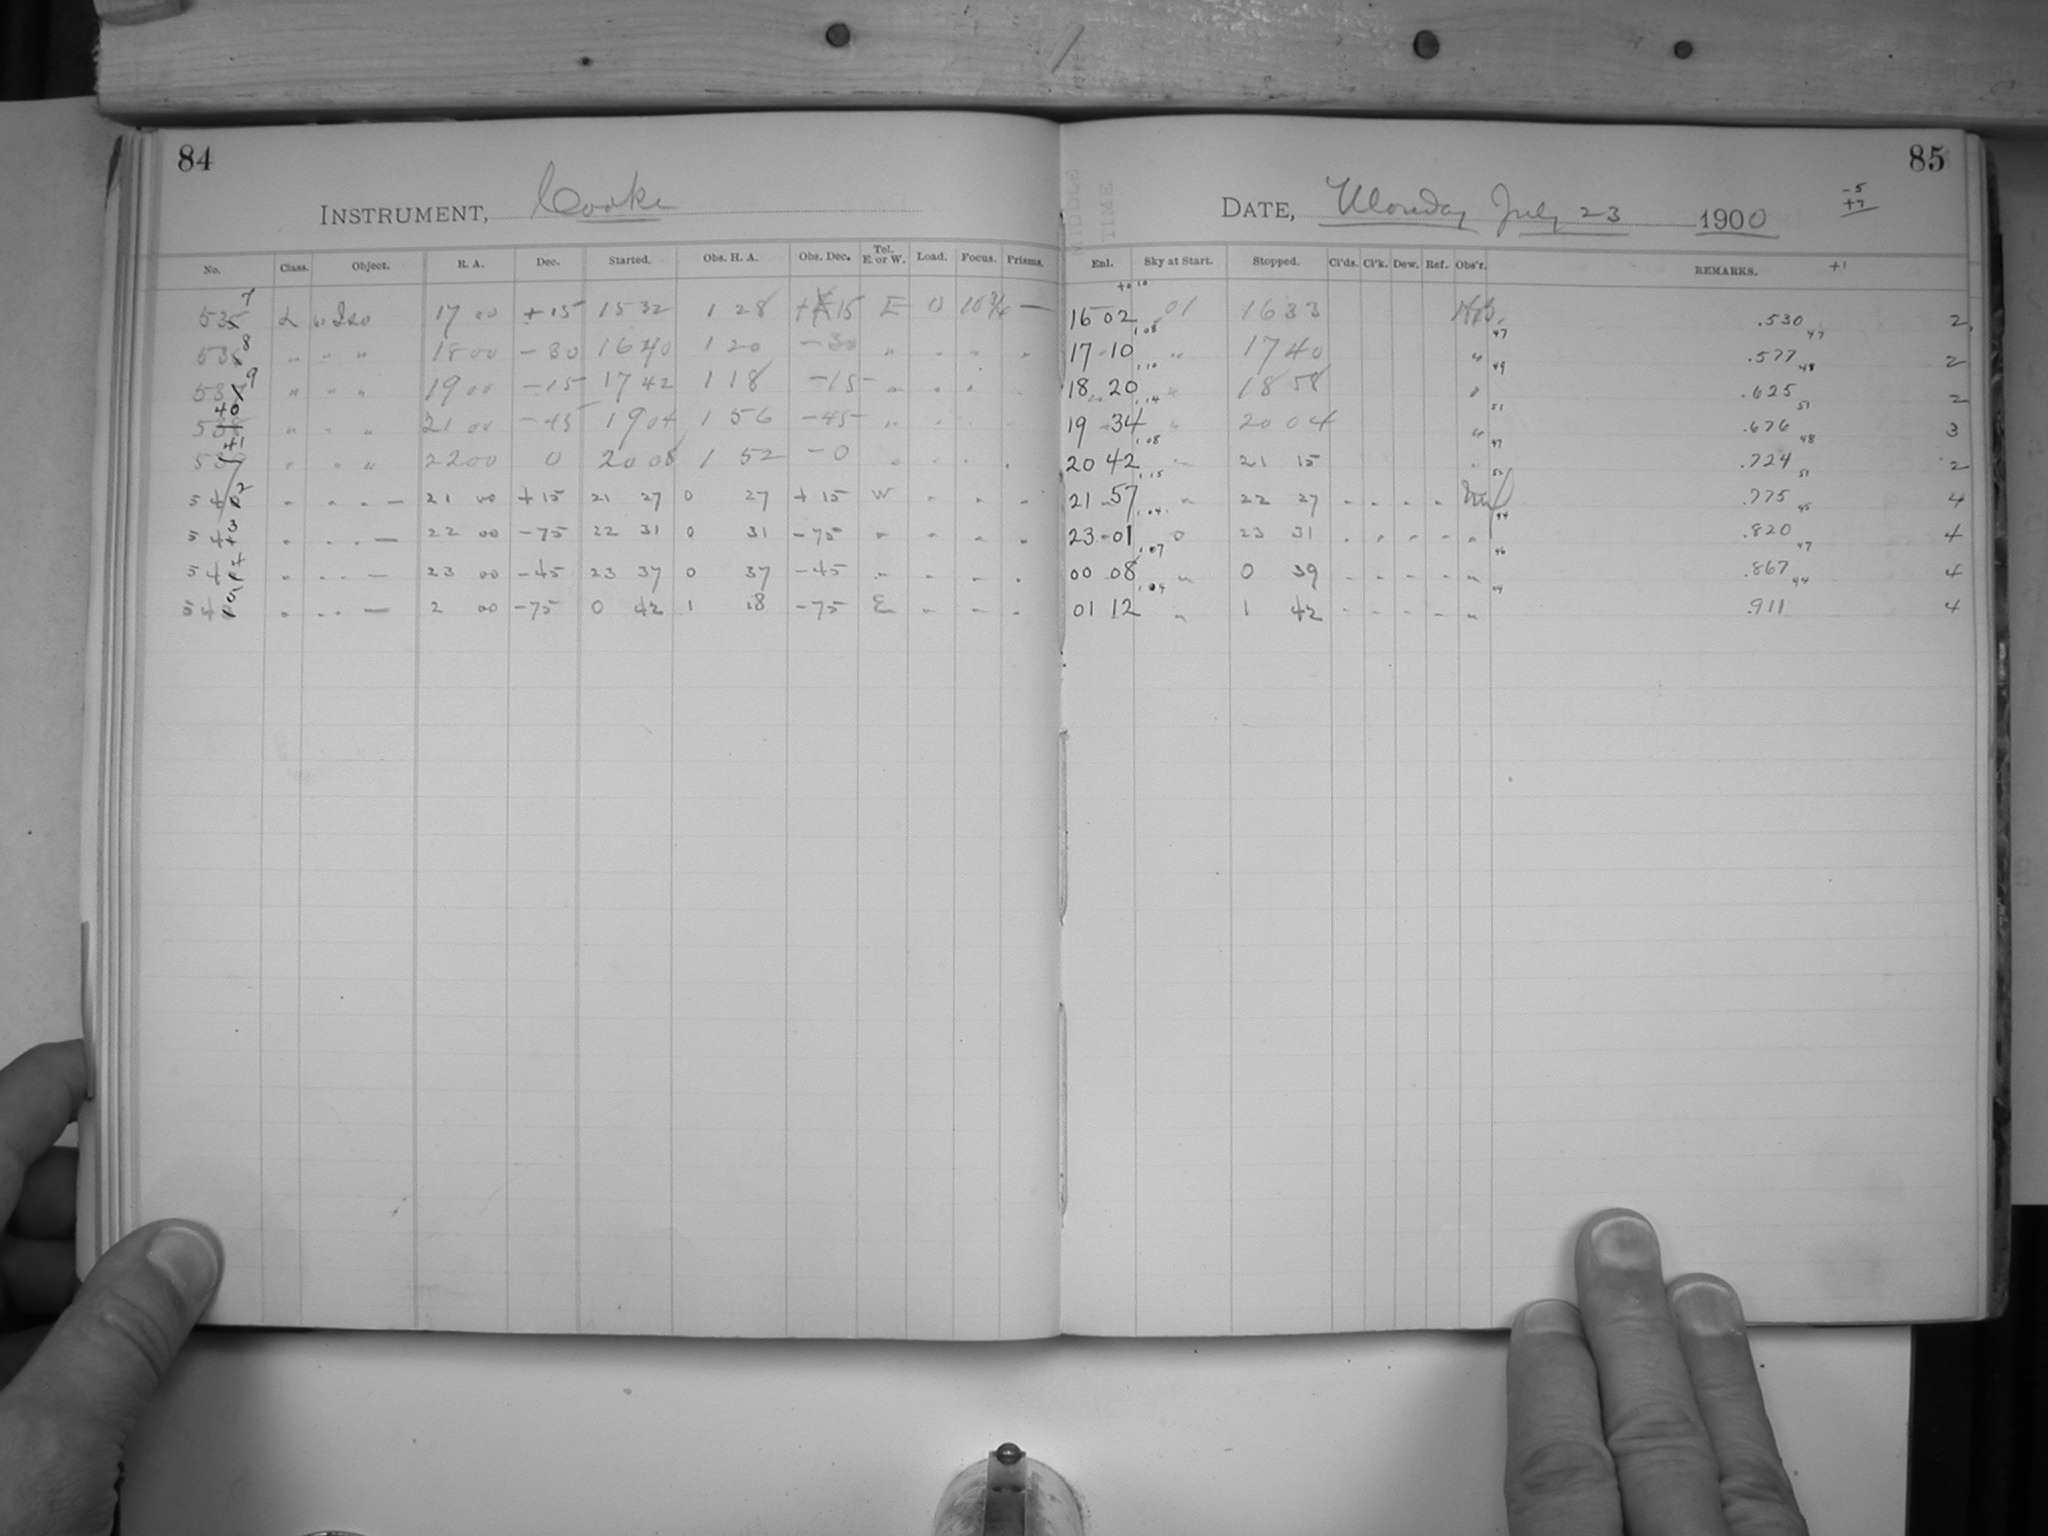 84
INSTRUMENT, Cooke
No. Class. Object. R. A. Dec. Started. Obs. H. A. Obs. Dec. Tel. E. or W. Load. Focus. Prisms.
537 L " Iso 17 00 +15 15 32 1 28 +15 E 0 10 3/4 —
538 " " " 18 00 -30 16 40 1 20 -30 " " " "
539 " " " 19 00 -15 17 42 1 18 -15 " " "
540 " " " 21 00 -45 19 04 1 56 -45 " " "
541 " " " 22 00 0 20 08 1 52 -0 " " " "
542 " " " — 21 00 +15 21 27 0 27 +15 W " " "
543 " " " — 22 00 -75 22 31 0 31 -75 " " " "
544 " " " — 23 00 -45 23 37 0 37 -45 " " " "
545 " " " — 2 00 -75 0 42 1 18 -75 E " " "
85
DATE, Monday July 23 1900
-5
+7
MIDDLE
TIME
Enl. Sky at Start. Stopped. Cl'ds. Cl'k. Dew. Ref. Obs'r. REMARKS. +1
16 02 01 16 33 47 .530 47 2
1.08
17-10 " 17 40 " 49 .577 48 2
1.10
18 20 " 18 58 " 51 .625 51 2
1.14
19-34 " 20 04 " 47 .676 48 3
1.08
20 42 " 21 15 " .724 51 2
1.15
21-57 " 22 27 " " " " 44 .775 45 4
1.04
23-01 0 23 31 " " " " " 46 .820 47 4
1.07
00 08 " 0 39 " " " " " 44 .867 44 4
1.04
01 12 " 1 42 " " " " " .911 4